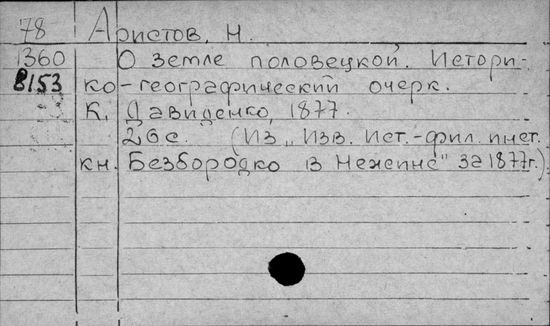 78 Аристов, Н.
1360 О земле половецкой. Истори-
8153 ко-географический очерк.
К. Давиденко, 1877.
26с. (Из „Изв. Ист.-фил. инст.
кн. Безбородко в Нежине" за 1877г.)